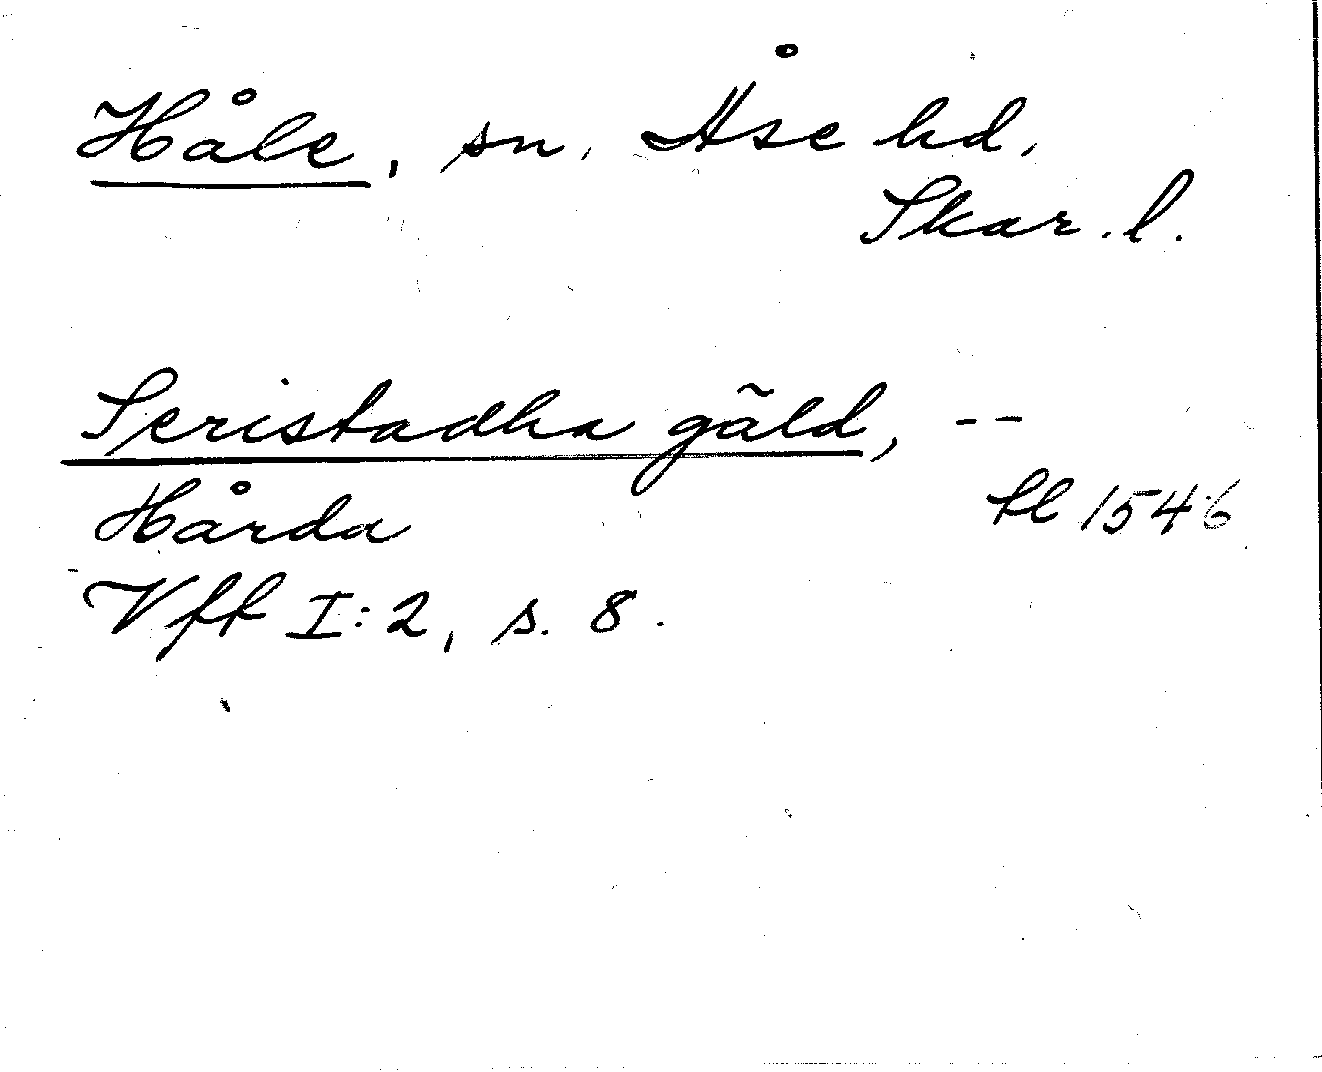 Håle, sn, Åse hd,
Skar. l.
Seristadha gäld, --
Hårda sl 1546
Vff I:2, s. 8.